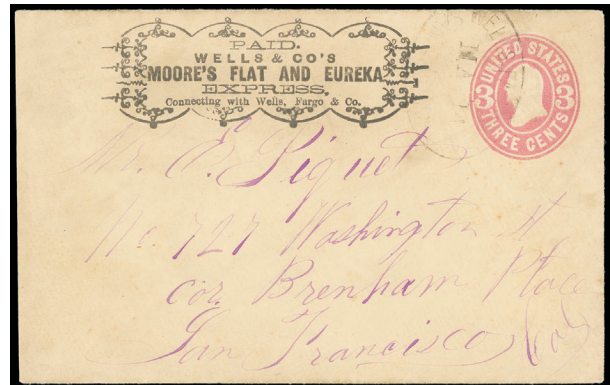 PAID.
WELLS & CO'S
MOORE'S FLAT AND EUREKA
EXPRESS,
Connecting with Wells, Fargo & Co.
UNITED STATES
3 3
THREE CENTS
Mr. E. Piquet
No. 727 Washington St
cor. Brenham Place
San Francisco Cal